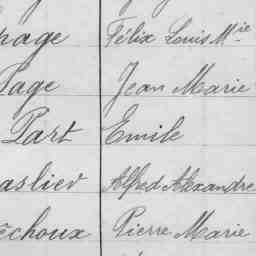 page Félix Louis Mie
Page Jean Marie
Part Emile
aslier Alfred Alexandre
echoux Pierre Marie